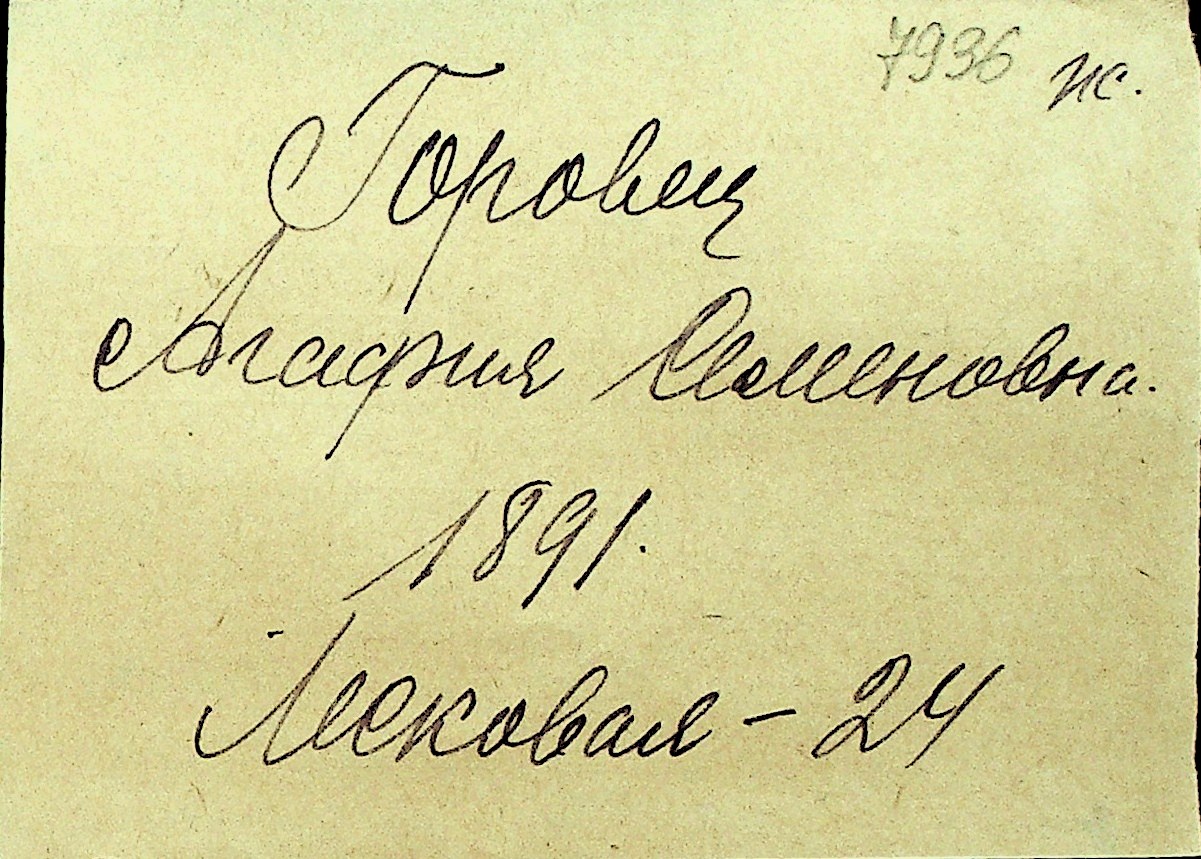 7936 ж.
Горовец
Агафия Семеновна.
1891.
Лесковая - 24